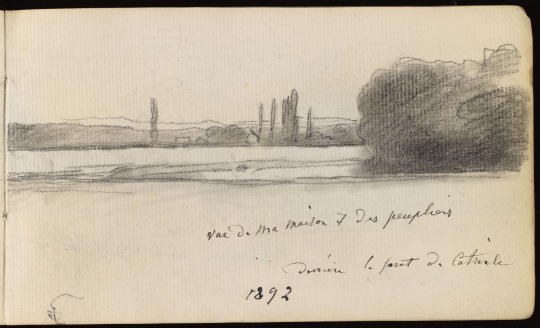 vue de ma maison & des peupliers
derrière la foret de
1892